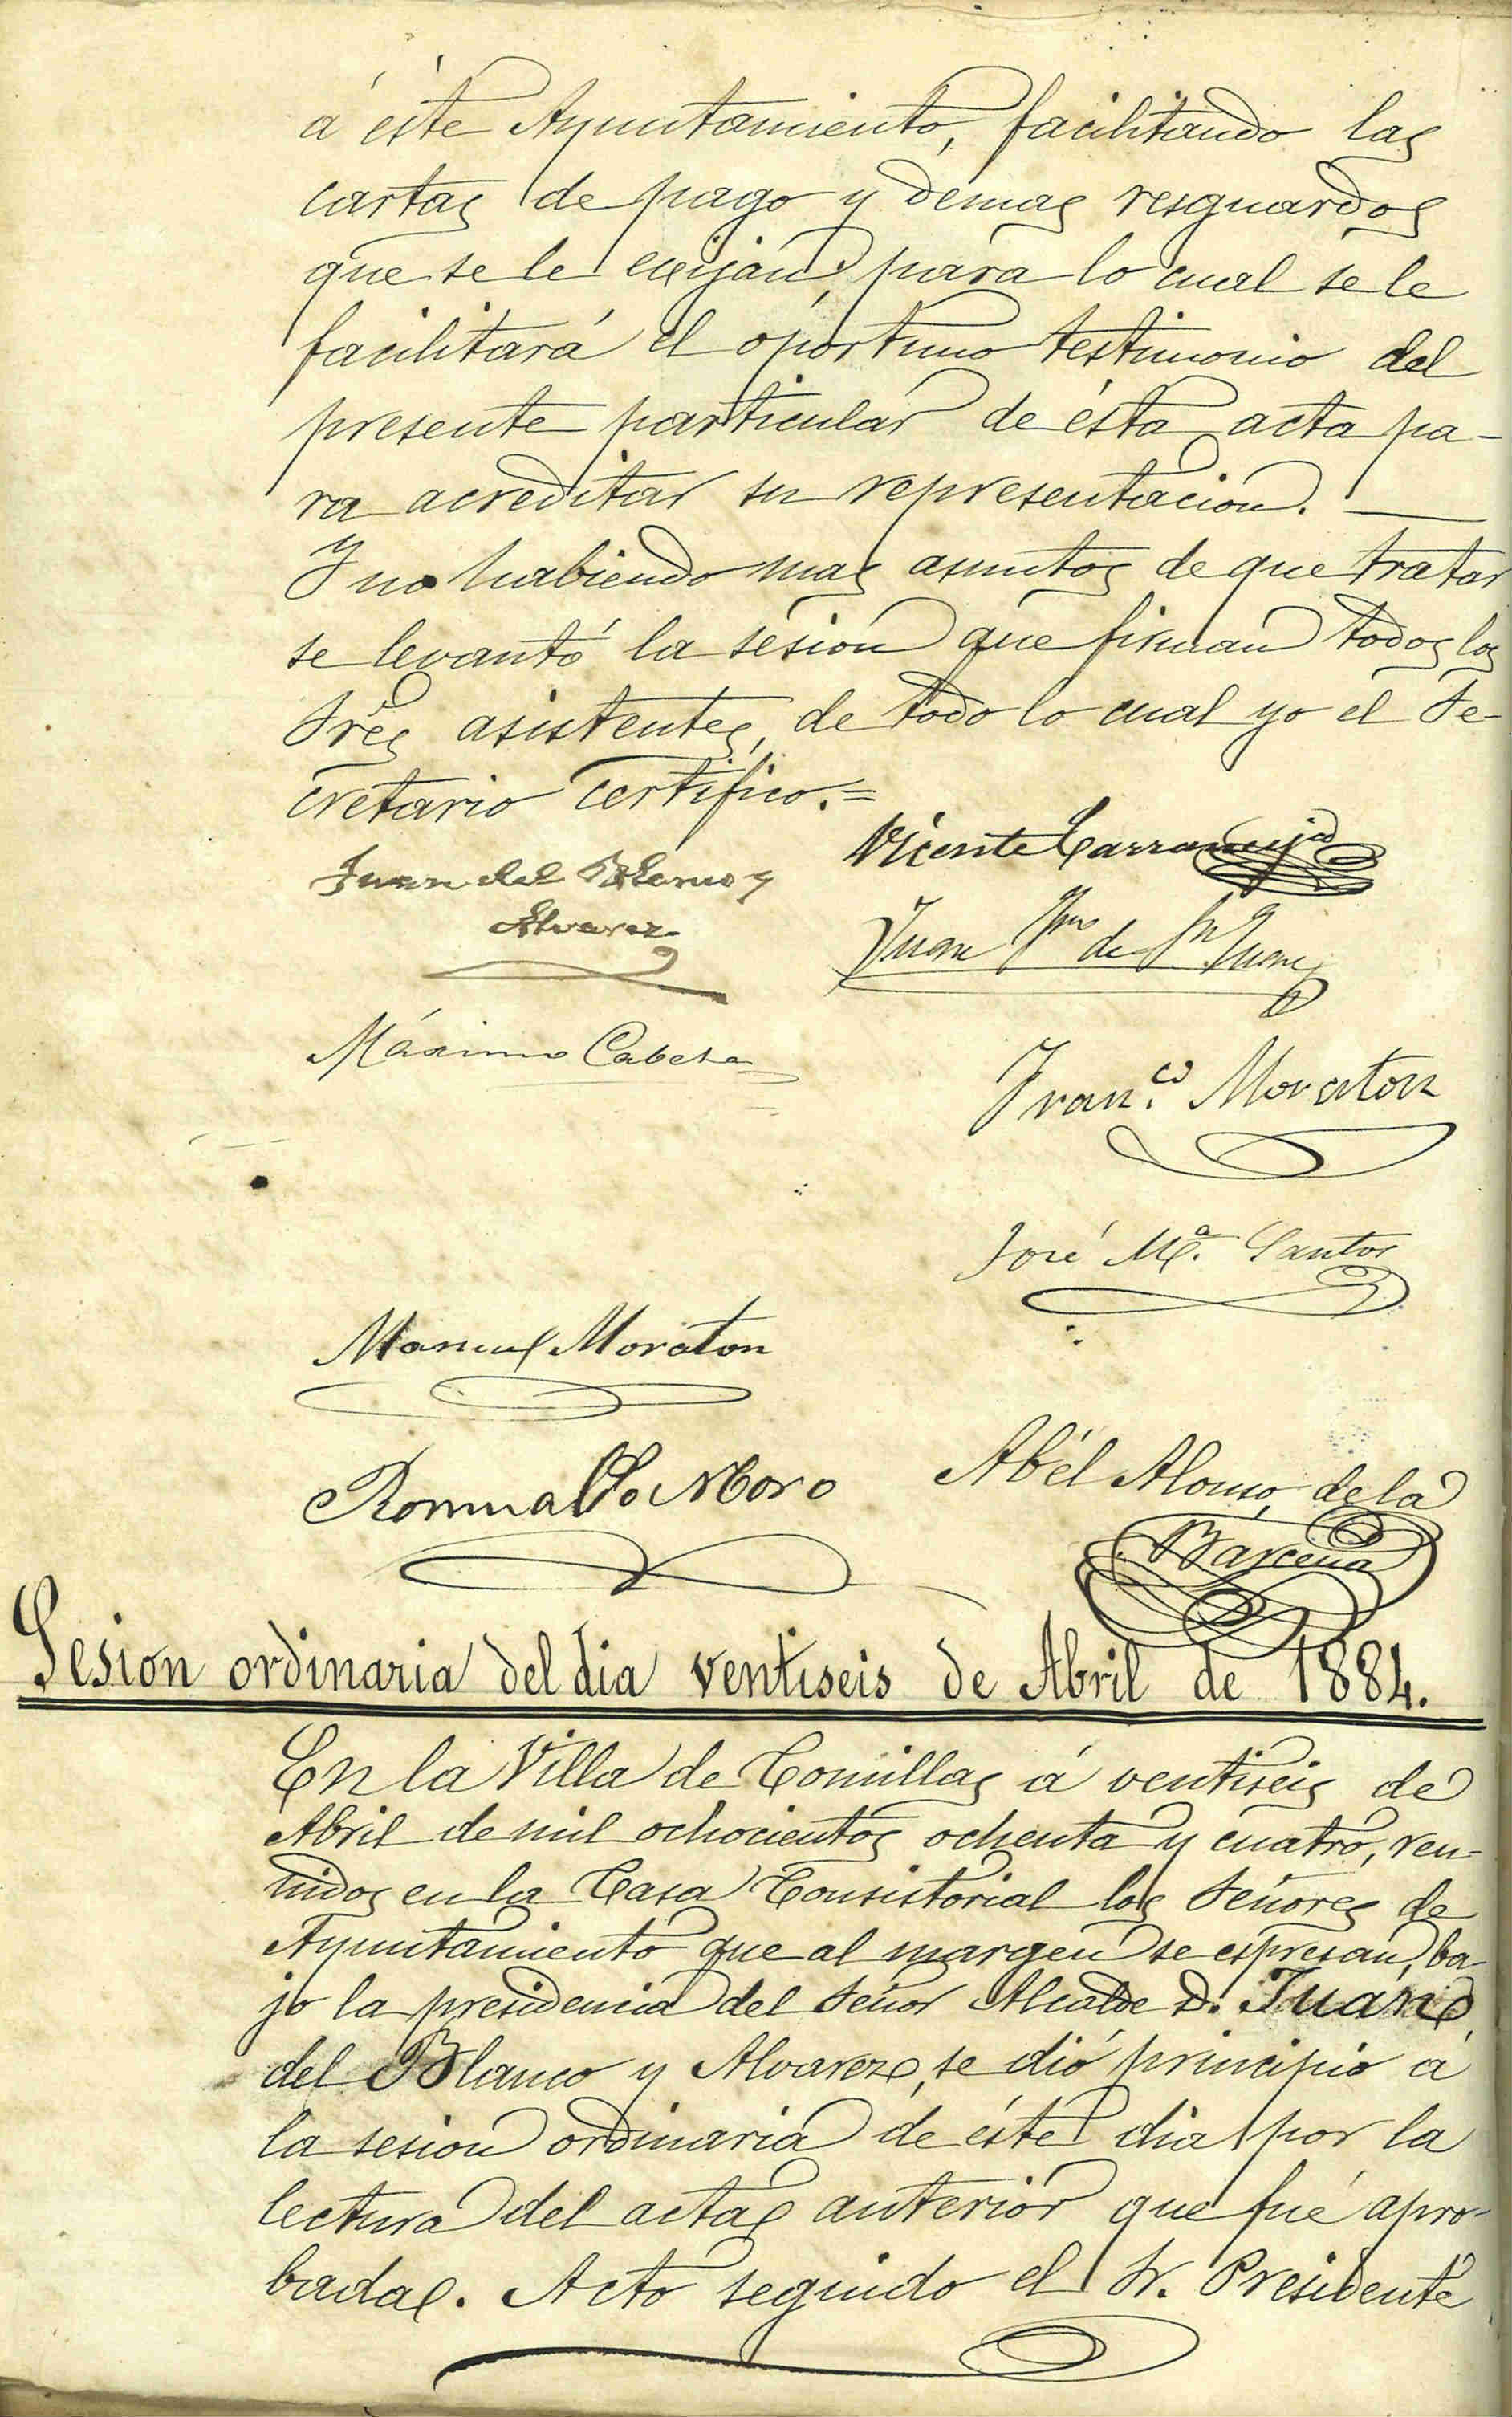 á éste Ayuntamiento, facilitando las
cartas de pago y demas resguardos
que se le exijan, para lo cual se le
facilitará el oportuno testimonio del
presente particular de ésta acta pa-
ra acreditar su representacion.
Y no habiendo mas asuntos de que tratar
se levantó la sesion que firman todos los
Sres asistentes, de todo lo cual yo el Se-
cretario certifico.=
Vicente Carranceja
Juan del Blanco y
Alvarez
Juan de Sn Juan
Máximo Cabeza
Franco. Moraton
José Ma. Santos
Manuel Moraton
Romualdo Moro
Abél Alonso de la
Bárcena
Sesion ordinaria del dia ventiseis de Abril de 1884.
En la Villa de Comillas á ventiseis de
Abril de mil ochocientos ochenta y cuatro, reu-
nidos en la Casa Consistorial los Señores de
Ayuntamiento que al margen se espresan, ba-
jo la presidencia del Señor Alcalde D. Juan
del Blanco y Alvarez, se dió principio á
la sesion ordinaria de éste dia por la
lectura del acta anterior que fué apro-
bada. Acto seguido el Sr. Presidente